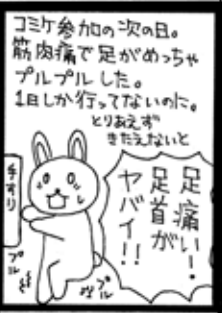 コミケ参加の次の日。
筋肉痛で足がめっちゃ
プルプルした。
1日しか行ってないのに。
とりあえず
きたえないと
足痛い!
足首が
ヤバイ!!
手すり
プル
プル